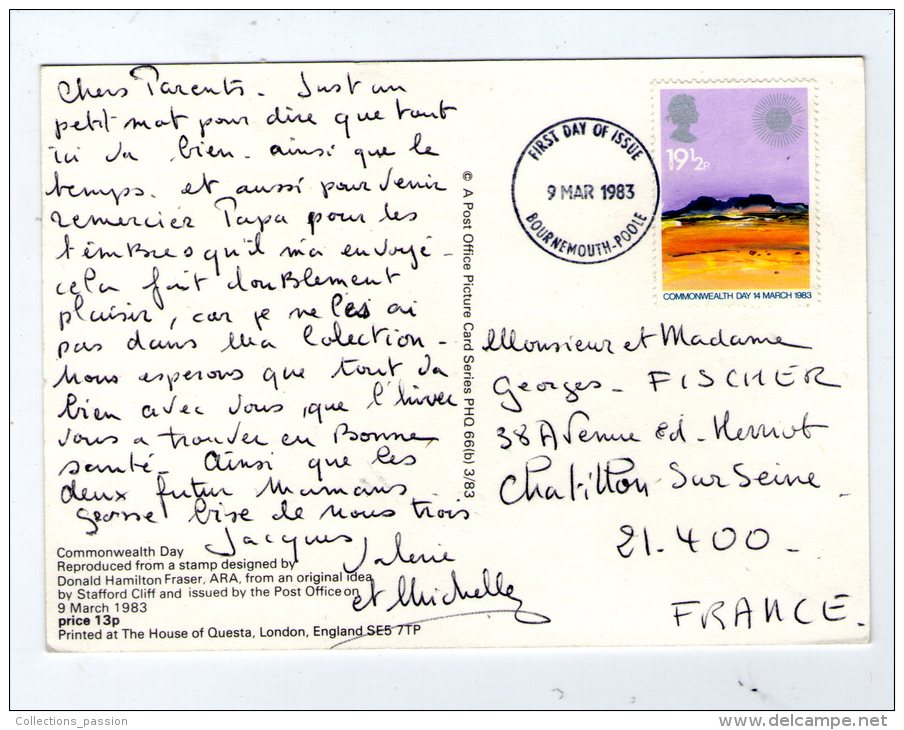 Chers Parents. Just un
petit mot pour dire que tout
ici va bien. ainsi que le
temps. et aussi pour venir
remercier Papa pour les
timbres qu'il m'a envoyé -
cela fait douBlement
plaisir, car je ne les ai
pas dans Ma Colection -
Nous esperons que tout va
bien avec vous, que l'hiver
vous a trouver en Bonne
santé - Ainsi que les
deux futur Mamans
grosse bise de nous trois
Jacques
Valerie
et Michelle
Commonwealth Day
Reproduced from a stamp designed by
Donald Hamilton Fraser, ARA, from an original idea
by Stafford Cliff and issued by the Post Office on
9 March 1983
price 13p
Printed at The House of Questa, London, England SE5 7TP
© A Post Office Picture Card Series PHQ 66(b) 3/83
FIRST DAY OF ISSUE
9 MAR 1983
BOURNEMOUTH-POOLE
19½P
COMMONWEALTH DAY 14 MARCH 1983
Monsieur et Madame
Georges - FISCHER
38 Avenue Ed - Herriot
Chatillon Sur Seine.
21.400 -
FRANCE.
Collections_passion
www.delcampe.net